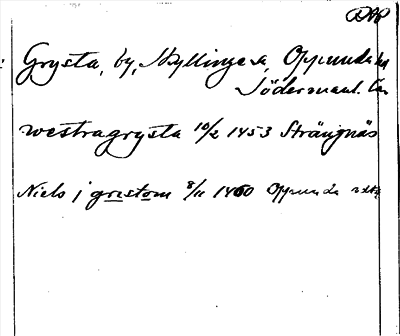 DAP
Grysta, by, Kyllinge s, Oppunda hd
Södermanl. län
westragrysta 10/2 1453 Strängnäs
Niels j grestom 8/11 1460 Oppunda